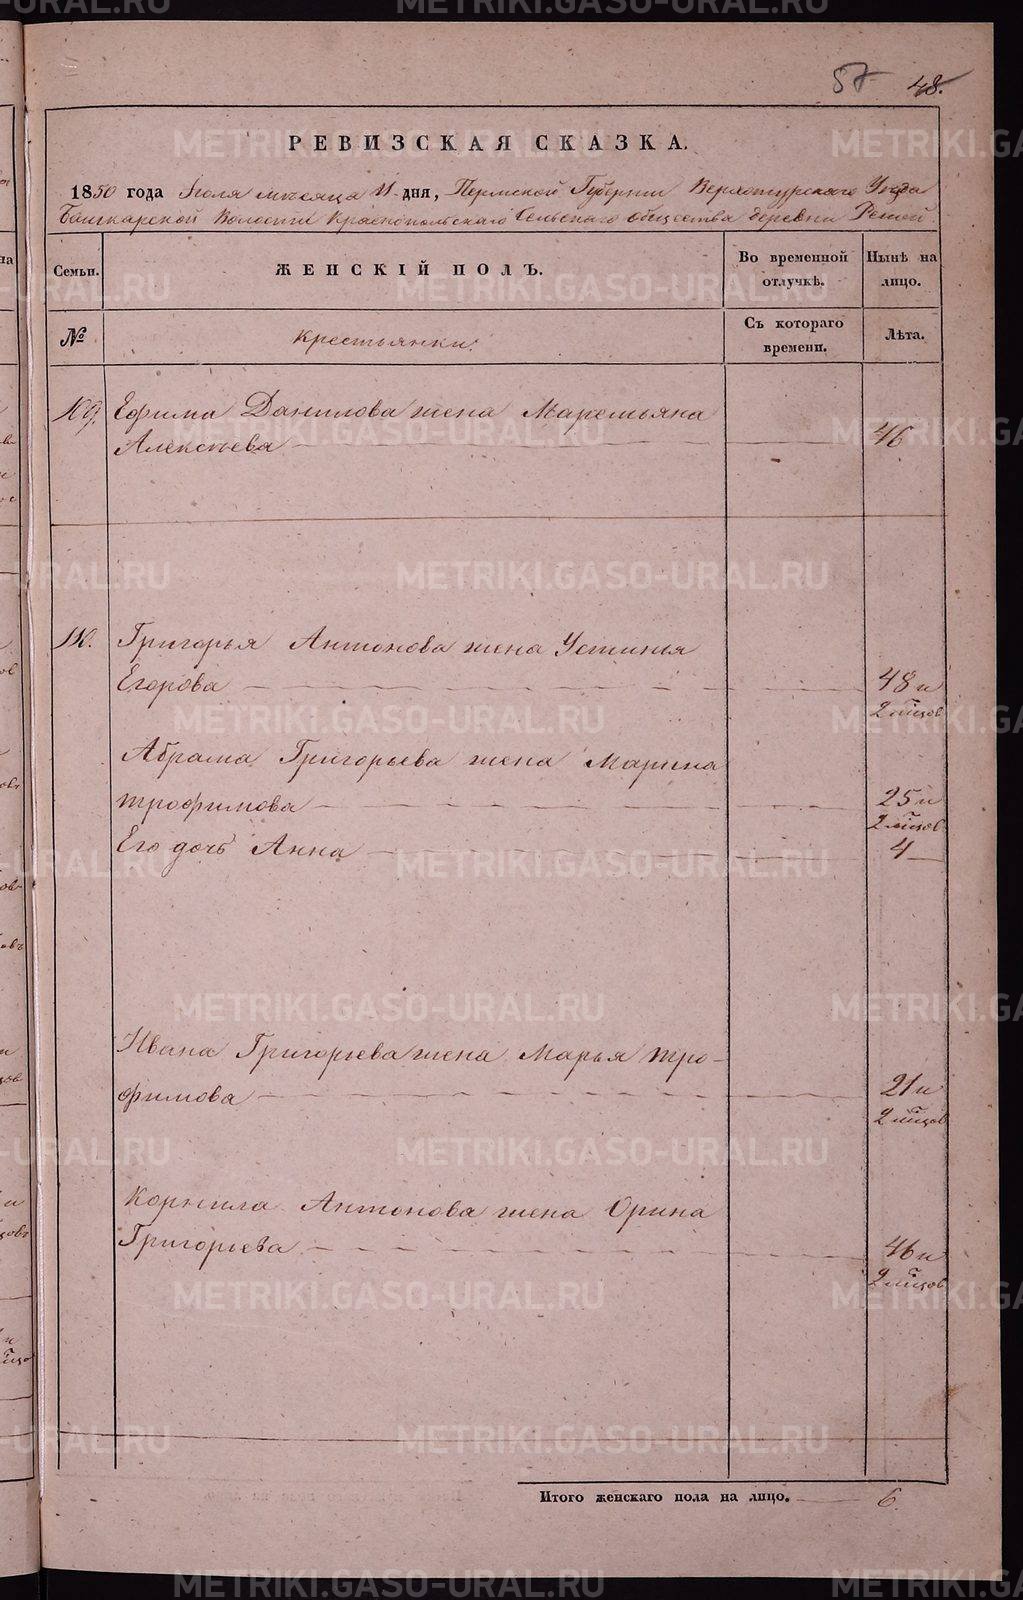 57 48.
РЕВИЗСКАЯ СКАЗКА.
1850 года Іюля мѣсяца 11 дня, Пермской Губерніи Верхотурскаго Уѣзда
Башкарской Волости Краснопольскаго Сельскаго общества деревни
Семьи. ЖЕНСКІЙ ПОЛЪ. Во временной отлучкѣ. Нынѣ на лицо.
№ Крестьянки. Съ котораго времени. Лѣта.
109. Ефима Данилова жена Маремьяна
Алексѣева 46
110. Григорья Антонова жена Устинья
Егорова 48 и
2 мѣсцов
Абрама Григорьева жена Марина
трофимова 25 и
2 мѣсцов
Его дочь Анна 4
Ивана Григорьева жена Марья тро-
фимова 21 и
2 мѣсцов
Корнила Антонова жена Орина
Григорьева 46 и
2 мѣсцов
Итого женскаго пола на лицо. 6.
METRIKI.GASO-URAL.RU